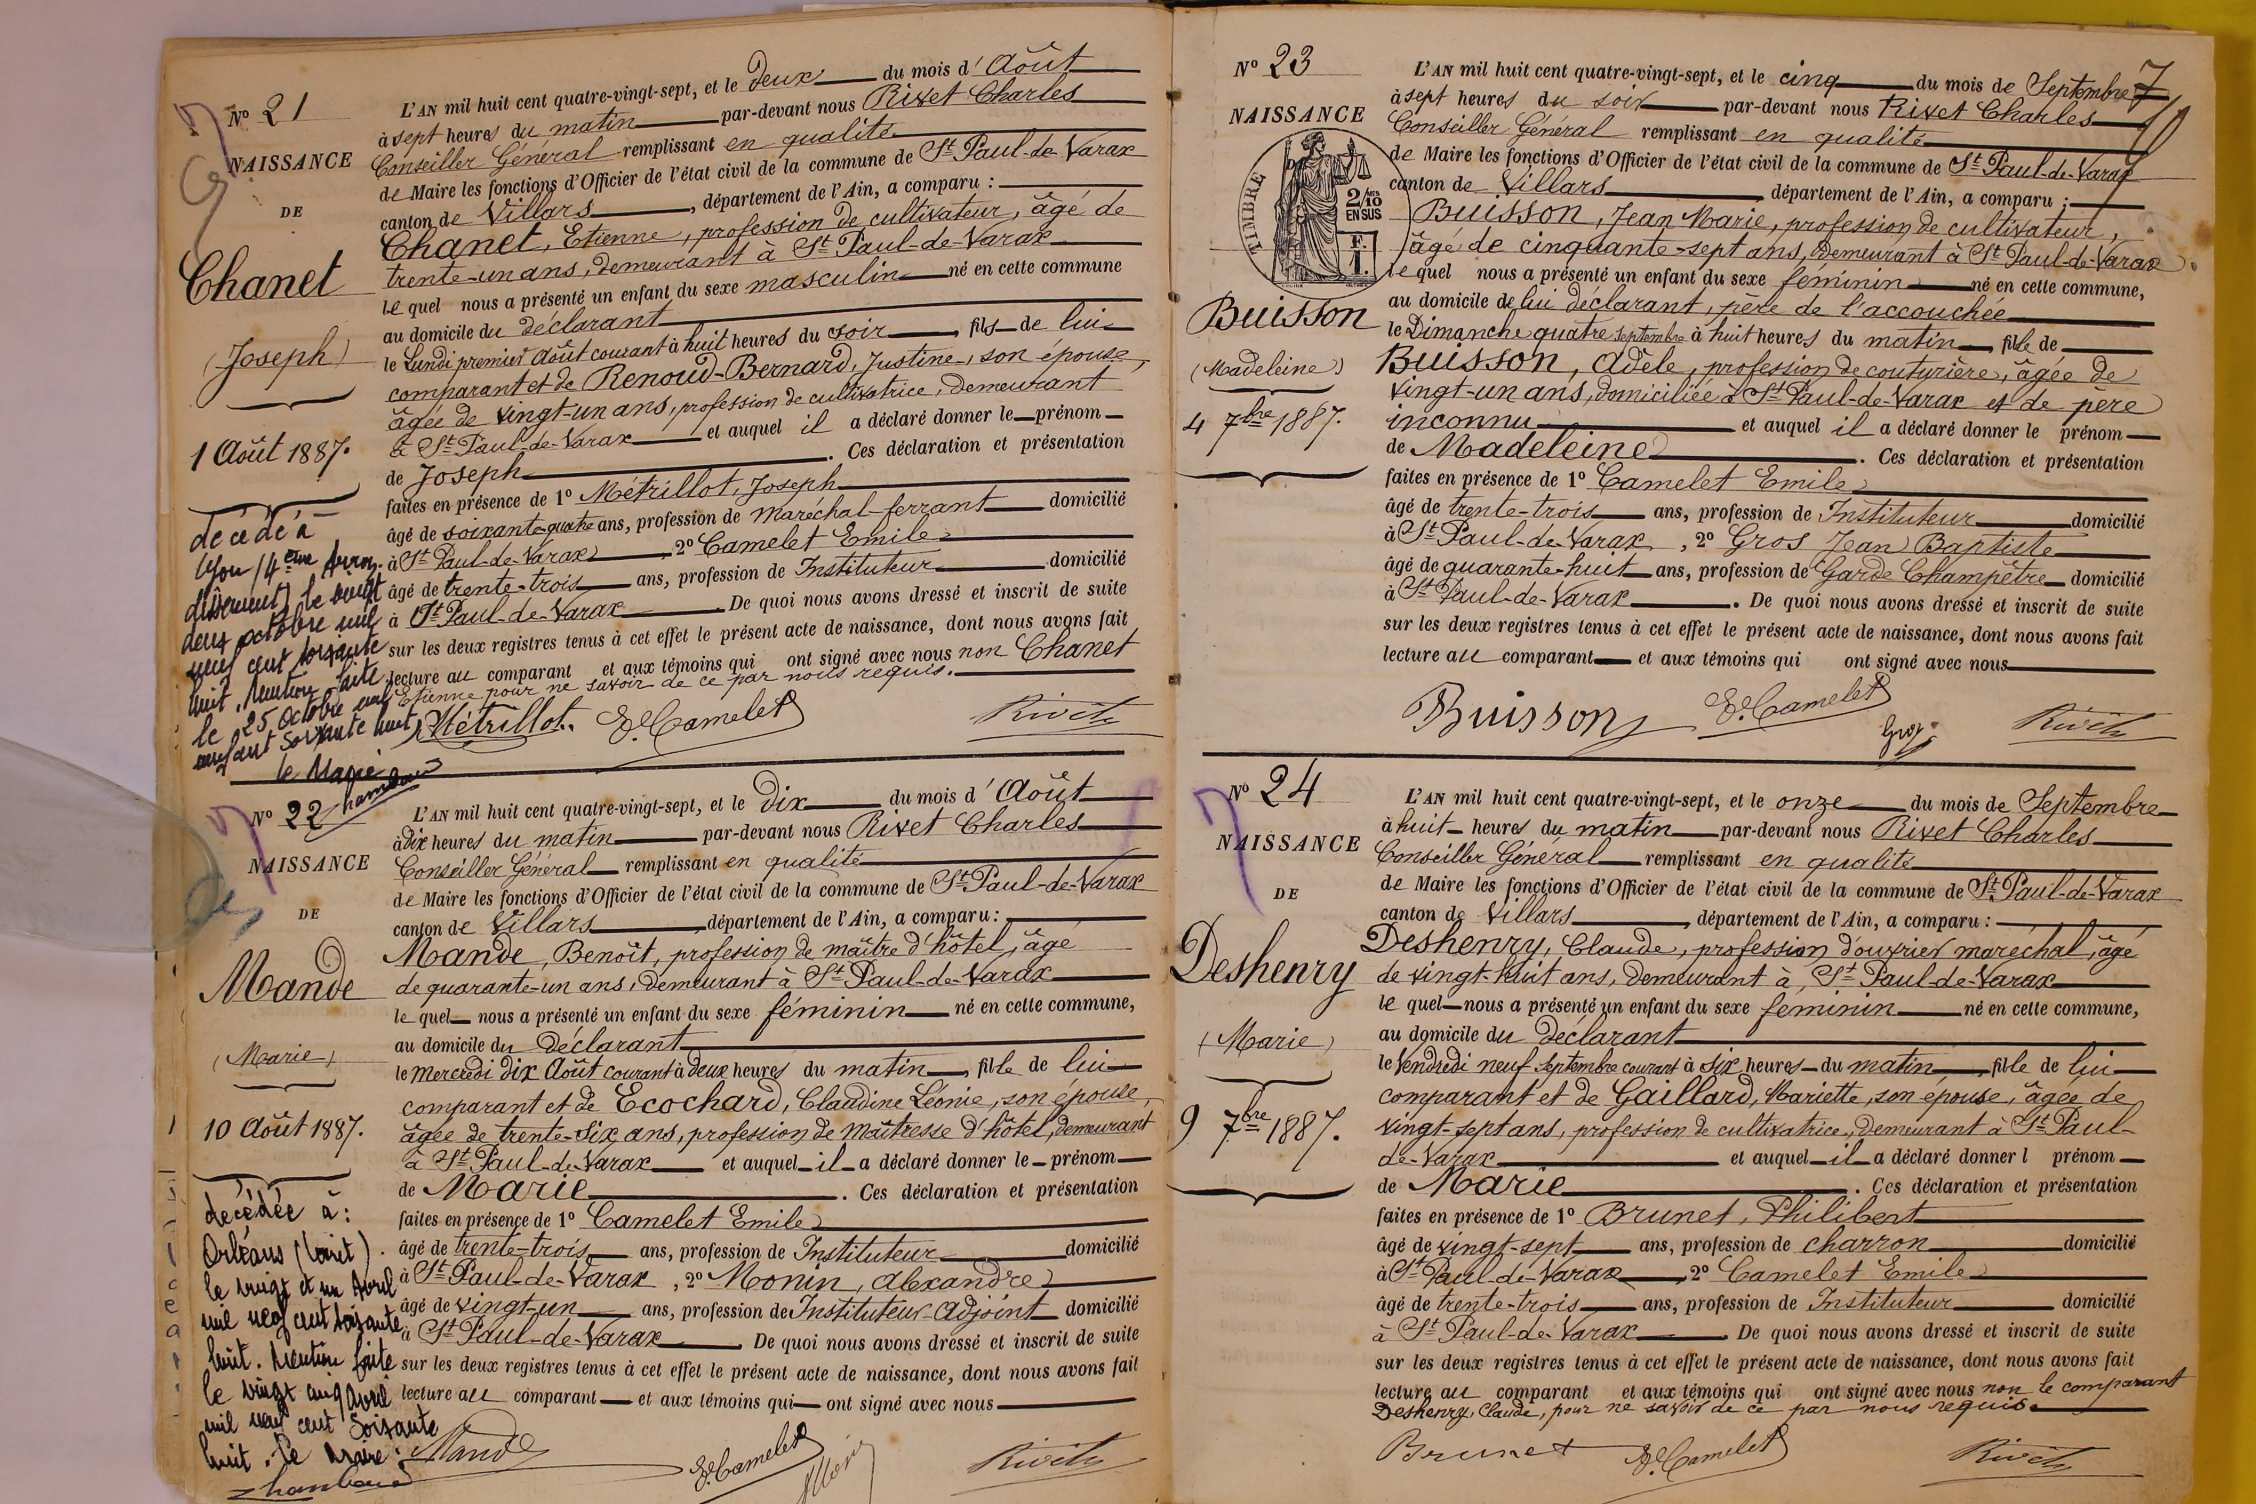 N° 21
NAISSANCE
DE
Chanet
(Joseph)
1 Août 1887.
décédé à
Lyon (4ème Arron-
dissement) le vingt
deux octobre mil
neuf cent soixante
huit. Mention faite
le 25 Octobre mil
neuf cent soixante huit
le Maire
L'AN mil huit cent quatre-vingt-sept, et le deux du mois d'Août
à sept heures du matin par-devant nous Rivet Charles
Conseiller Général remplissant en qualité
de Maire les fonctions d'Officier de l'état civil de la commune de St Paul-de-Varax
canton de Villars, département de l'Ain, a comparu :
Chanet, Etienne, profession de cultivateur, âgé de
trente-un ans, demeurant à St Paul-de-Varax
lequel nous a présenté un enfant du sexe masculin né en cette commune
au domicile du déclarant
le Lundi premier Août courant à huit heures du soir, fils de lui
comparant et de Renoud-Bernard, Justine, son épouse,
âgée de vingt-un ans, profession de cultivatrice, demeurant
à St Paul-de-Varax et auquel il a déclaré donner le prénom
de Joseph. Ces déclaration et présentation
faites en présence de 1° Métrillot, Joseph
âgé de soixante-quatre ans, profession de maréchal-ferrant domicilié
à St Paul-de-Varax, 2° Camelet Emile
âgé de trente-trois ans, profession de Instituteur domicilié
à St Paul-de-Varax. De quoi nous avons dressé et inscrit de suite
sur les deux registres tenus à cet effet le présent acte de naissance, dont nous avons fait
lecture au comparant et aux témoins qui ont signé avec nous non Chanet
Etienne pour ne savoir de ce par nous requis.
Métrillot. E. Camelet Rivet
N° 22
NAISSANCE
DE
Mande
(Marie)
10 Août 1887.
décédée à :
Orléans (Loiret).
le vingt et un Avril
mil neuf cent soixante
huit. Mention faite
le vingt cinq Avril
mil neuf cent soixante
huit. Le Maire :
L'AN mil huit cent quatre-vingt-sept, et le dix du mois d'Août
à dix heures du matin par-devant nous Rivet Charles
Conseiller Général remplissant en qualité
de Maire les fonctions d'Officier de l'état civil de la commune de St Paul-de-Varax
canton de Villars, département de l'Ain, a comparu :
Mande, Benoît, profession de maître d'hôtel, âgé
de quarante-un ans, demeurant à St Paul-de-Varax
lequel nous a présenté un enfant du sexe féminin né en cette commune,
au domicile du déclarant
le mercredi dix Août courant à deux heures du matin, fille de lui
comparant et de Ecochard, Claudine Léonie, son épouse,
âgée de trente-six ans, profession de maîtresse d'hôtel, demeurant
à St Paul-de-Varax et auquel il a déclaré donner le prénom
de Marie. Ces déclaration et présentation
faites en présence de 1° Camelet Emile
âgé de trente-trois ans, profession de Instituteur domicilié
à St Paul-de-Varax, 2° Monin, Alexandre
âgé de vingt-un ans, profession de Instituteur-Adjoint domicilié
à St Paul-de-Varax. De quoi nous avons dressé et inscrit de suite
sur les deux registres tenus à cet effet le présent acte de naissance, dont nous avons fait
lecture au comparant et aux témoins qui ont signé avec nous
Mande E. Camelet Rivet
7
N° 23
NAISSANCE
TIMBRE
2/10
EN SUS
F.
1.
Buisson
(Madeleine)
4 7bre 1887.
L'AN mil huit cent quatre-vingt-sept, et le cinq du mois de Septembre
à sept heures du soir par-devant nous Rivet Charles
Conseiller Général remplissant en qualité
de Maire les fonctions d'Officier de l'état civil de la commune de St Paul-de-Varax
canton de Villars, département de l'Ain, a comparu :
Buisson, Jean Marie, profession de cultivateur,
âgé de cinquante-sept ans, demeurant à St Paul-de-Varax
lequel nous a présenté un enfant du sexe féminin né en cette commune,
au domicile de lui déclarant, père de l'accouchée
le Dimanche quatre septembre à huit heures du matin, fille de
Buisson, Adèle, profession de couturière, âgée de
vingt-un ans, domiciliée à St Paul-de-Varax et de père
inconnu et auquel il a déclaré donner le prénom
de Madeleine. Ces déclaration et présentation
faites en présence de 1° Camelet Emile
âgé de trente-trois ans, profession de Instituteur domicilié
à St Paul-de-Varax, 2° Gros Jean Baptiste
âgé de quarante-huit ans, profession de Garde Champêtre domicilié
à St Paul-de-Varax. De quoi nous avons dressé et inscrit de suite
sur les deux registres tenus à cet effet le présent acte de naissance, dont nous avons fait
lecture au comparant et aux témoins qui ont signé avec nous
Buisson E. Camelet Gros Rivet
N° 24
NAISSANCE
DE
Deshenry
(Marie)
9 7bre 1887.
L'AN mil huit cent quatre-vingt-sept, et le onze du mois de Septembre
à huit heures du matin par-devant nous Rivet Charles
Conseiller Général remplissant en qualité
de Maire les fonctions d'Officier de l'état civil de la commune de St Paul-de-Varax
canton de Villars, département de l'Ain, a comparu :
Deshenry, Claude, profession d'ouvrier maréchal, âgé
de vingt-huit ans, demeurant à St Paul-de-Varax
lequel nous a présenté un enfant du sexe féminin né en cette commune,
au domicile du déclarant
le Vendredi neuf Septembre courant à six heures du matin, fille de lui
comparant et de Gaillard, Mariette, son épouse, âgée de
vingt-sept ans, profession de cultivatrice, demeurant à St Paul-
de-Varax et auquel il a déclaré donner l prénom
de Marie. Ces déclaration et présentation
faites en présence de 1° Brunet, Philibert
âgé de vingt-sept ans, profession de charron domicilié
à St Paul-de-Varax, 2° Camelet Emile
âgé de trente-trois ans, profession de Instituteur domicilié
à St Paul-de-Varax. De quoi nous avons dressé et inscrit de suite
sur les deux registres tenus à cet effet le présent acte de naissance, dont nous avons fait
lecture au comparant et aux témoins qui ont signé avec nous non le comparant
Deshenry, Claude, pour ne savoir de ce par nous requis.
Brunet E. Camelet Rivet